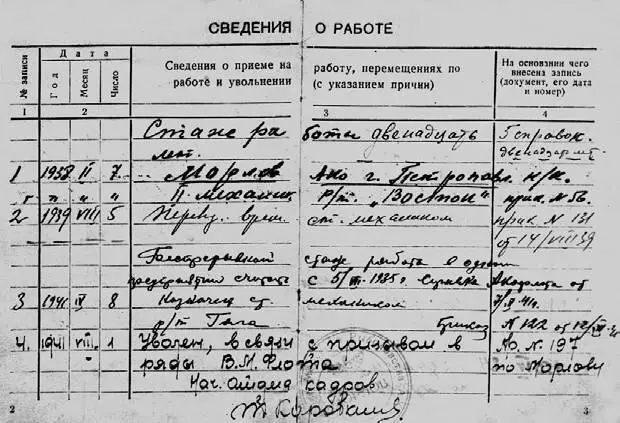 СВЕДЕНИЯ О РАБОТЕ
№ записи
Дата
Год
Месяц
Число
Сведения о приеме на работу, перемещениях по
работе и увольнении (с указанием причин)
На основании чего
внесена запись
(документ, его дата
и номер)
1 2 3 4
Стаж работы двенадцать 5 справок.
лет. двенадцать лет
1 1938 II 7. Ако г. Петропавл. н/к.
" " " II механик р/т. "Восток" прик. № 56.
2 1939 VIII 5 Перев. врем. ст. механиком прик. N 131
от 14/VIII 39
Беспрерывный стаж работы в одном
предприятии считать с 5/ 1935г. справка Акофлота от
3 1941 8 Назначен ст. механиком
р/т Гага приказ N 122 от
4. 1941 VIII. 1 Уволен, в связи с призывом в N 197
ряды В.М. Флота
Нач. кадров
2 3